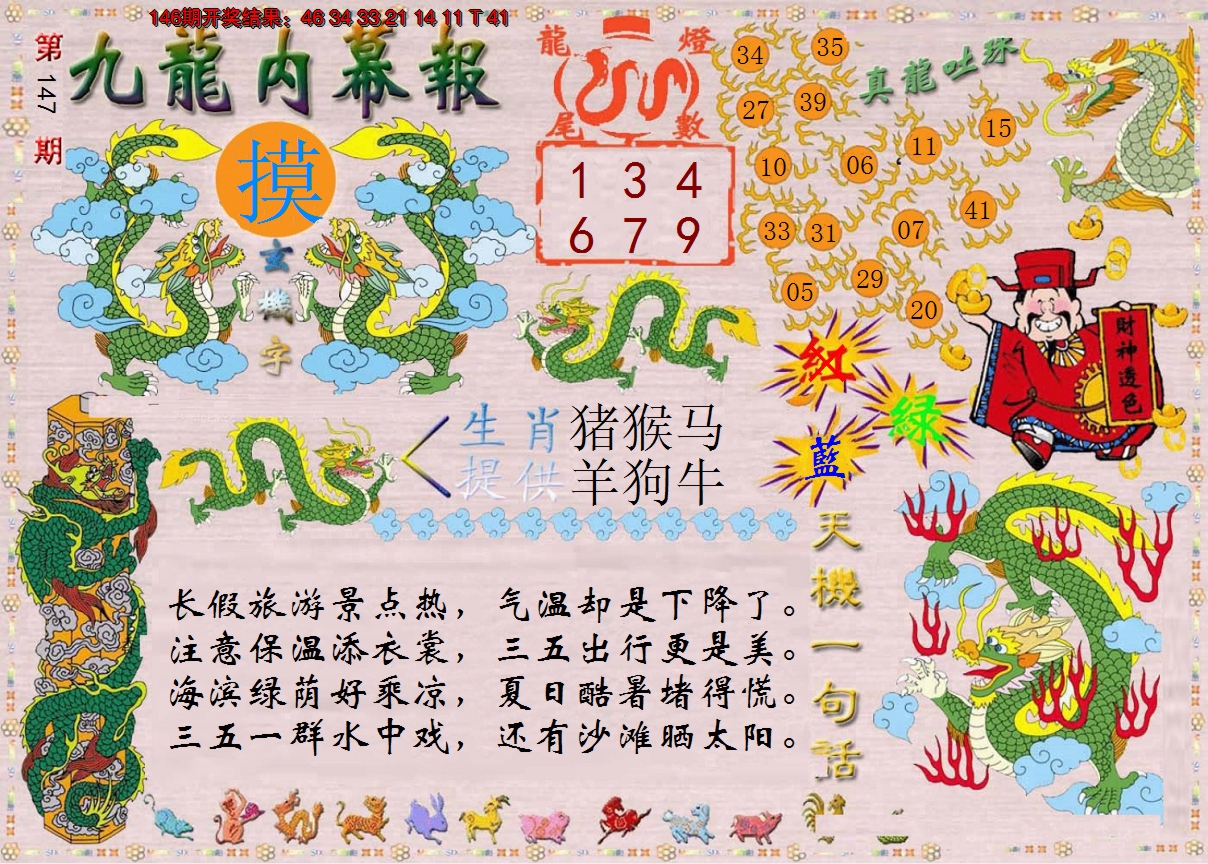 146期开奖结果：46 34 33 21 14 11 T 41
第147期
九龍内幕報
摸
玄機字
龍燈
尾數
1 3 4
6 7 9
真龍吐珠
34
35
27
39
10
06
11
15
33
31
07
41
05
29
20
紅
綠
藍
財神透色
生肖提供
猪猴马
羊狗牛
天機一句話
长假旅游景点热，气温却是下降了。
注意保温添衣裳，三五出行更是美。
海滨绿荫好乘凉，夏日酷暑堵得慌。
三五一群水中戏，还有沙滩晒太阳。